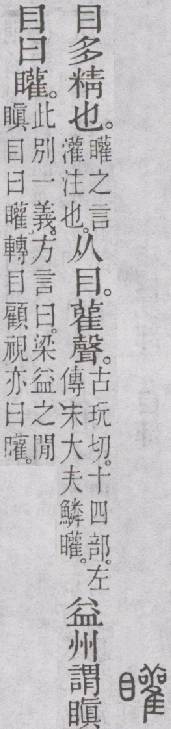 矔
目多精也。矔之言灌注也。从目。雚聲。古玩切。十四部。左傳宋大夫鱗矔。益州謂瞋
目曰矔。此別一義。方言曰。梁益之閒瞋目曰矔。轉目顧視亦曰矔。